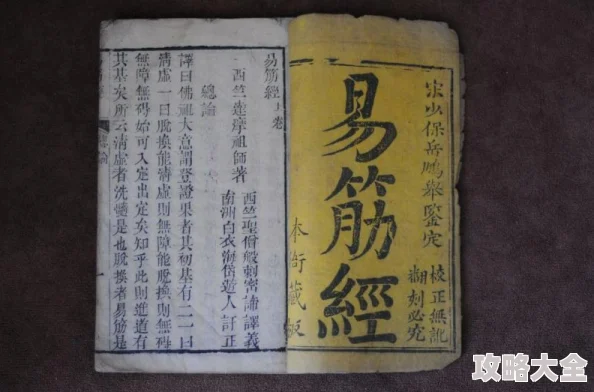 宋少保岳鵬舉鑒定
易筋經
本衙藏板
校正無訛
翻刻必究
易筋經上卷
西竺達摩祖師著
西竺聖僧般剌密諦譯義
南洲白衣海岱遊人訂正
總論
譯曰佛祖大意謂登證果者其初基有二一曰
清虛一曰脫換能清虛則無障能脫換則無碍
無障無碍始可入定出定矣知乎此則進道有
其基矣所云清虛者洗髓是也脫換者易筋是
總論
攻略大全